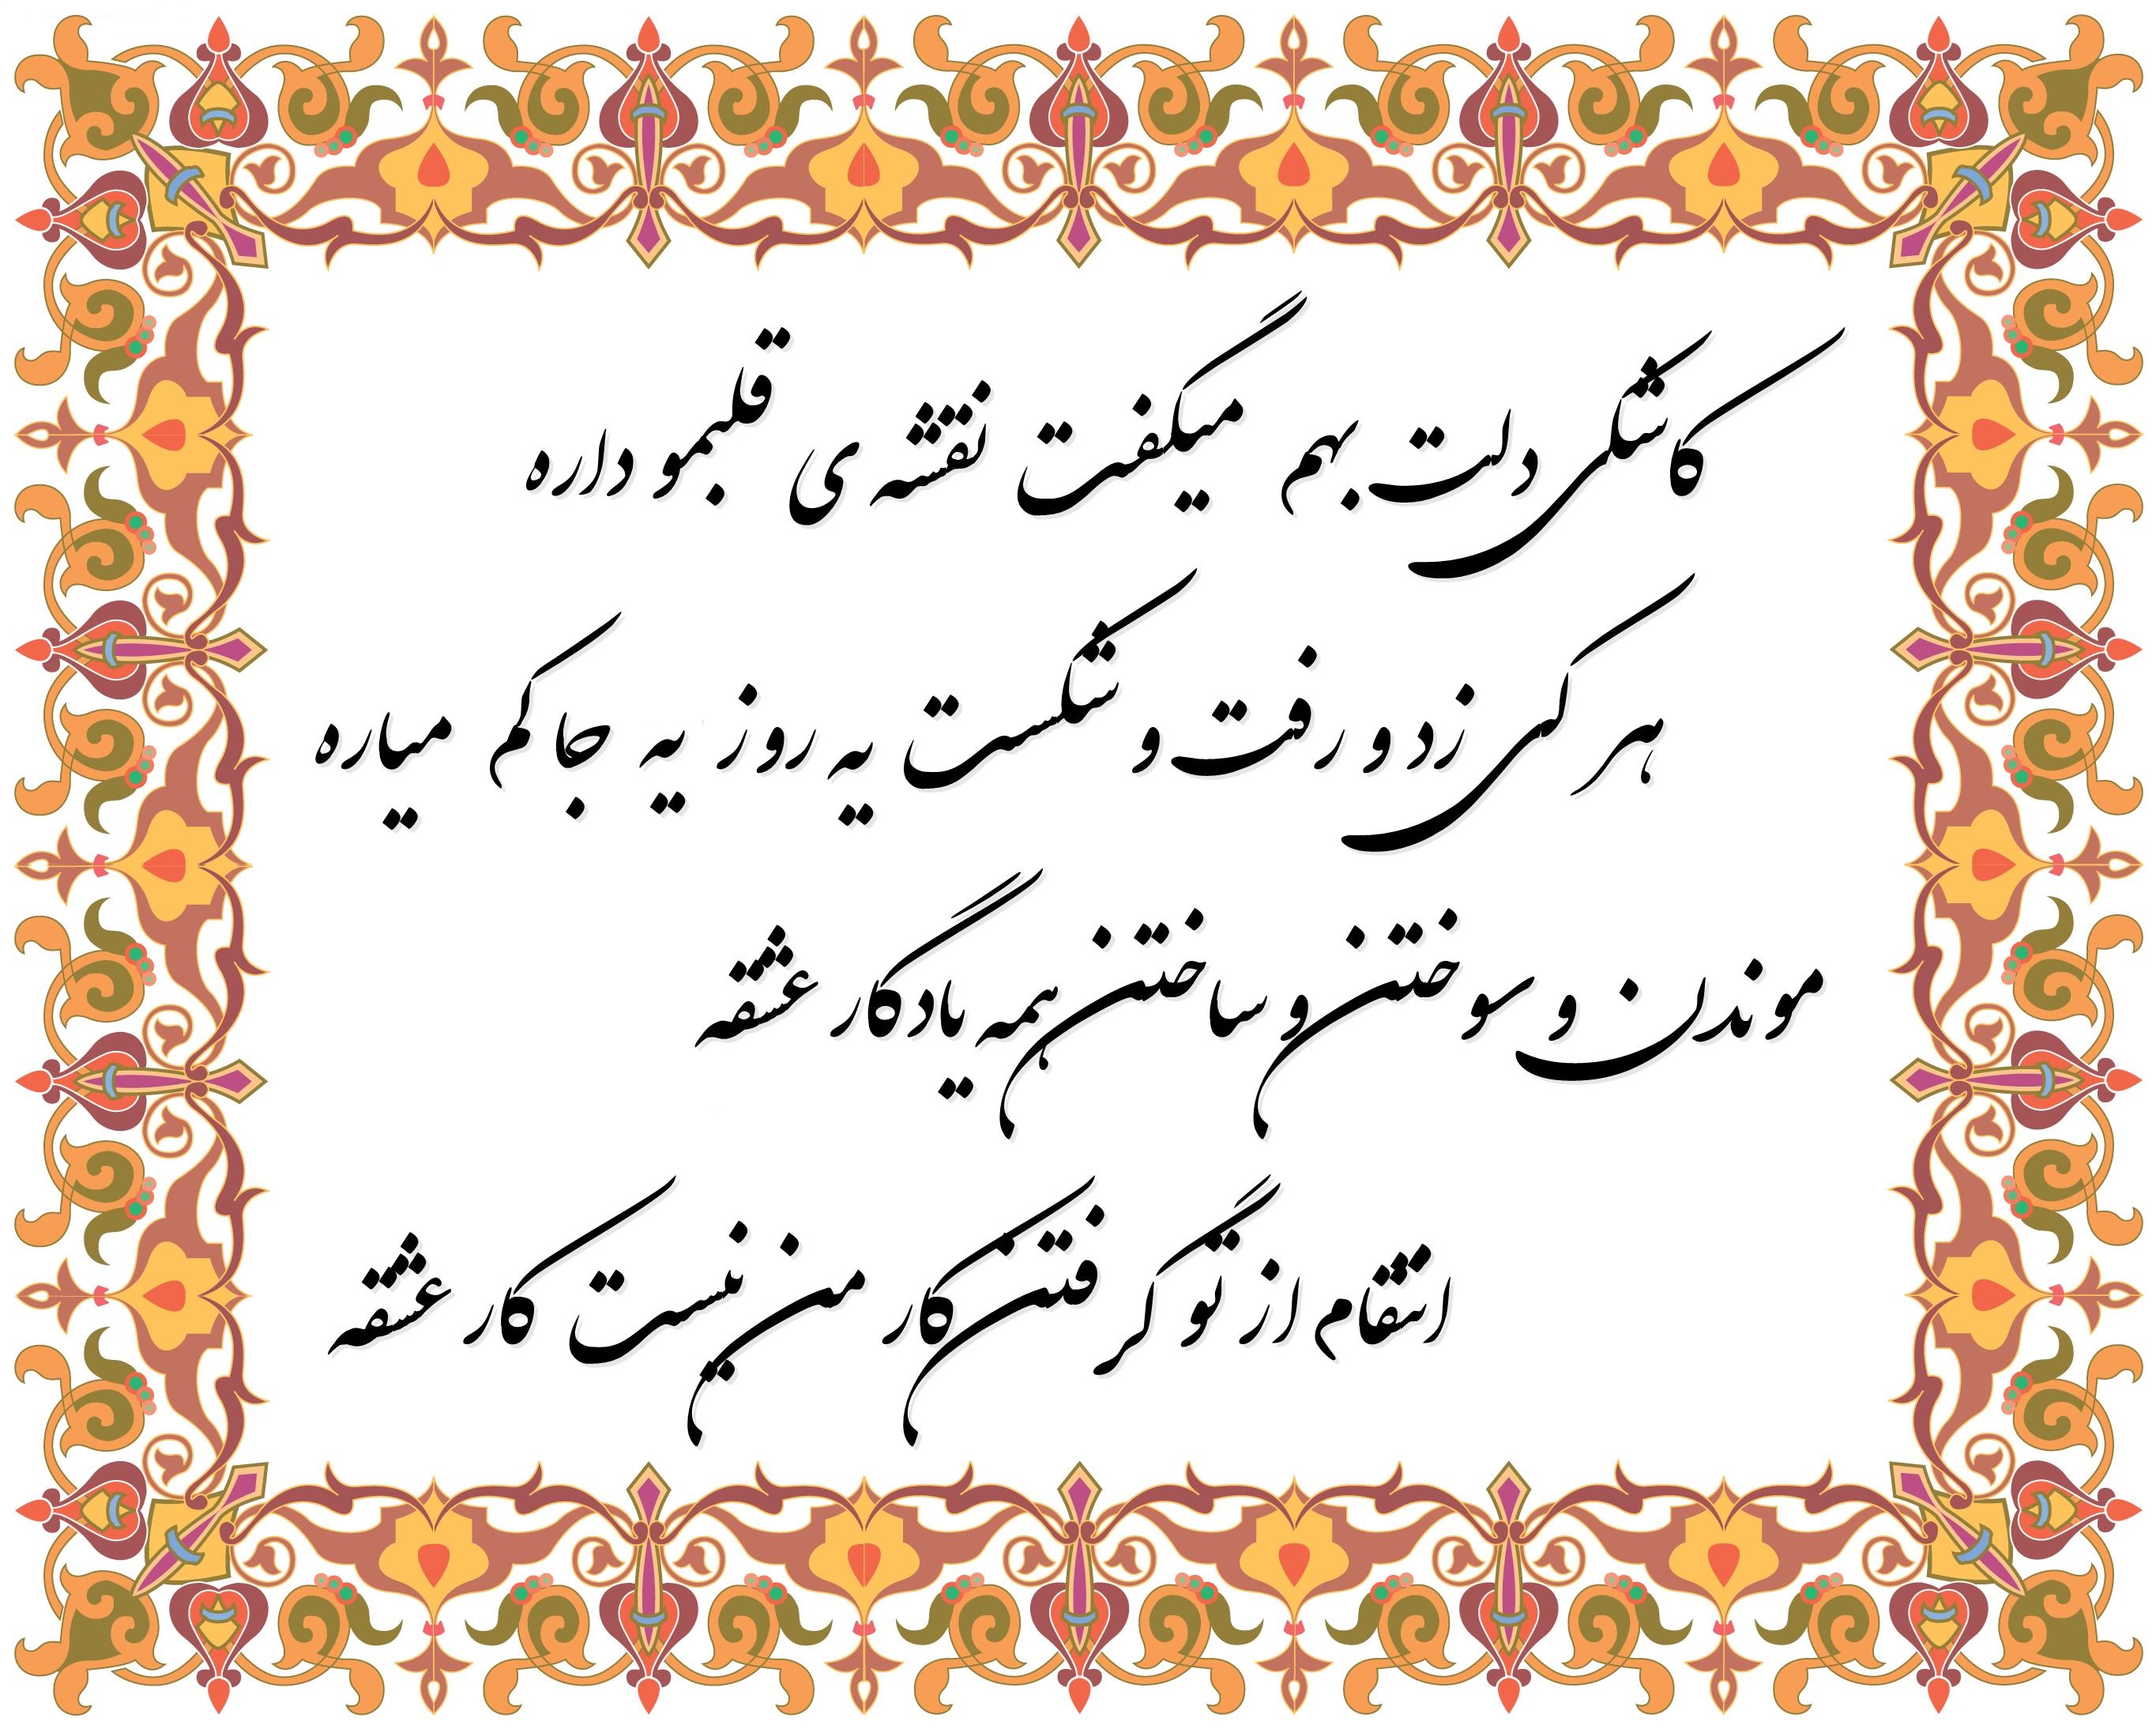 کاشکی دلت بهم میگفت نقشه ی قلبمو داره
هر کی زد و رفت و شکست یه روز یه جا کم میاره
موندن و سوختن و ساختن همه یادگار عشقه
انتقام از تو گرفتن کار من نیست کار عشقه